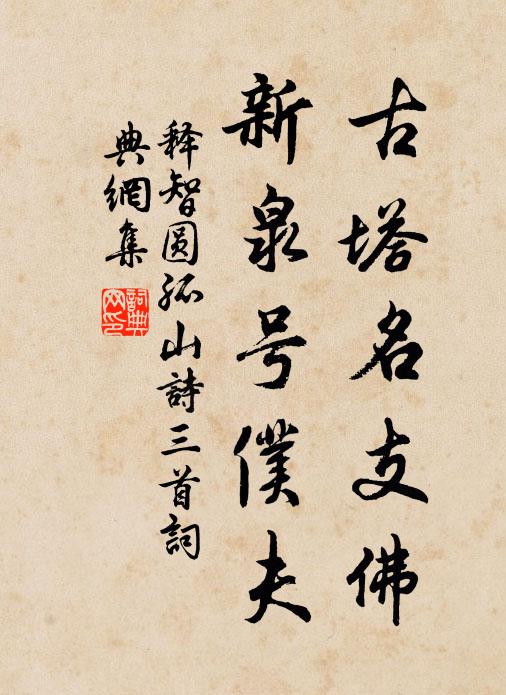 古塔名支佛
新泉号僕夫
释智圆孤山詩三首詞
典網集
詞典
网印